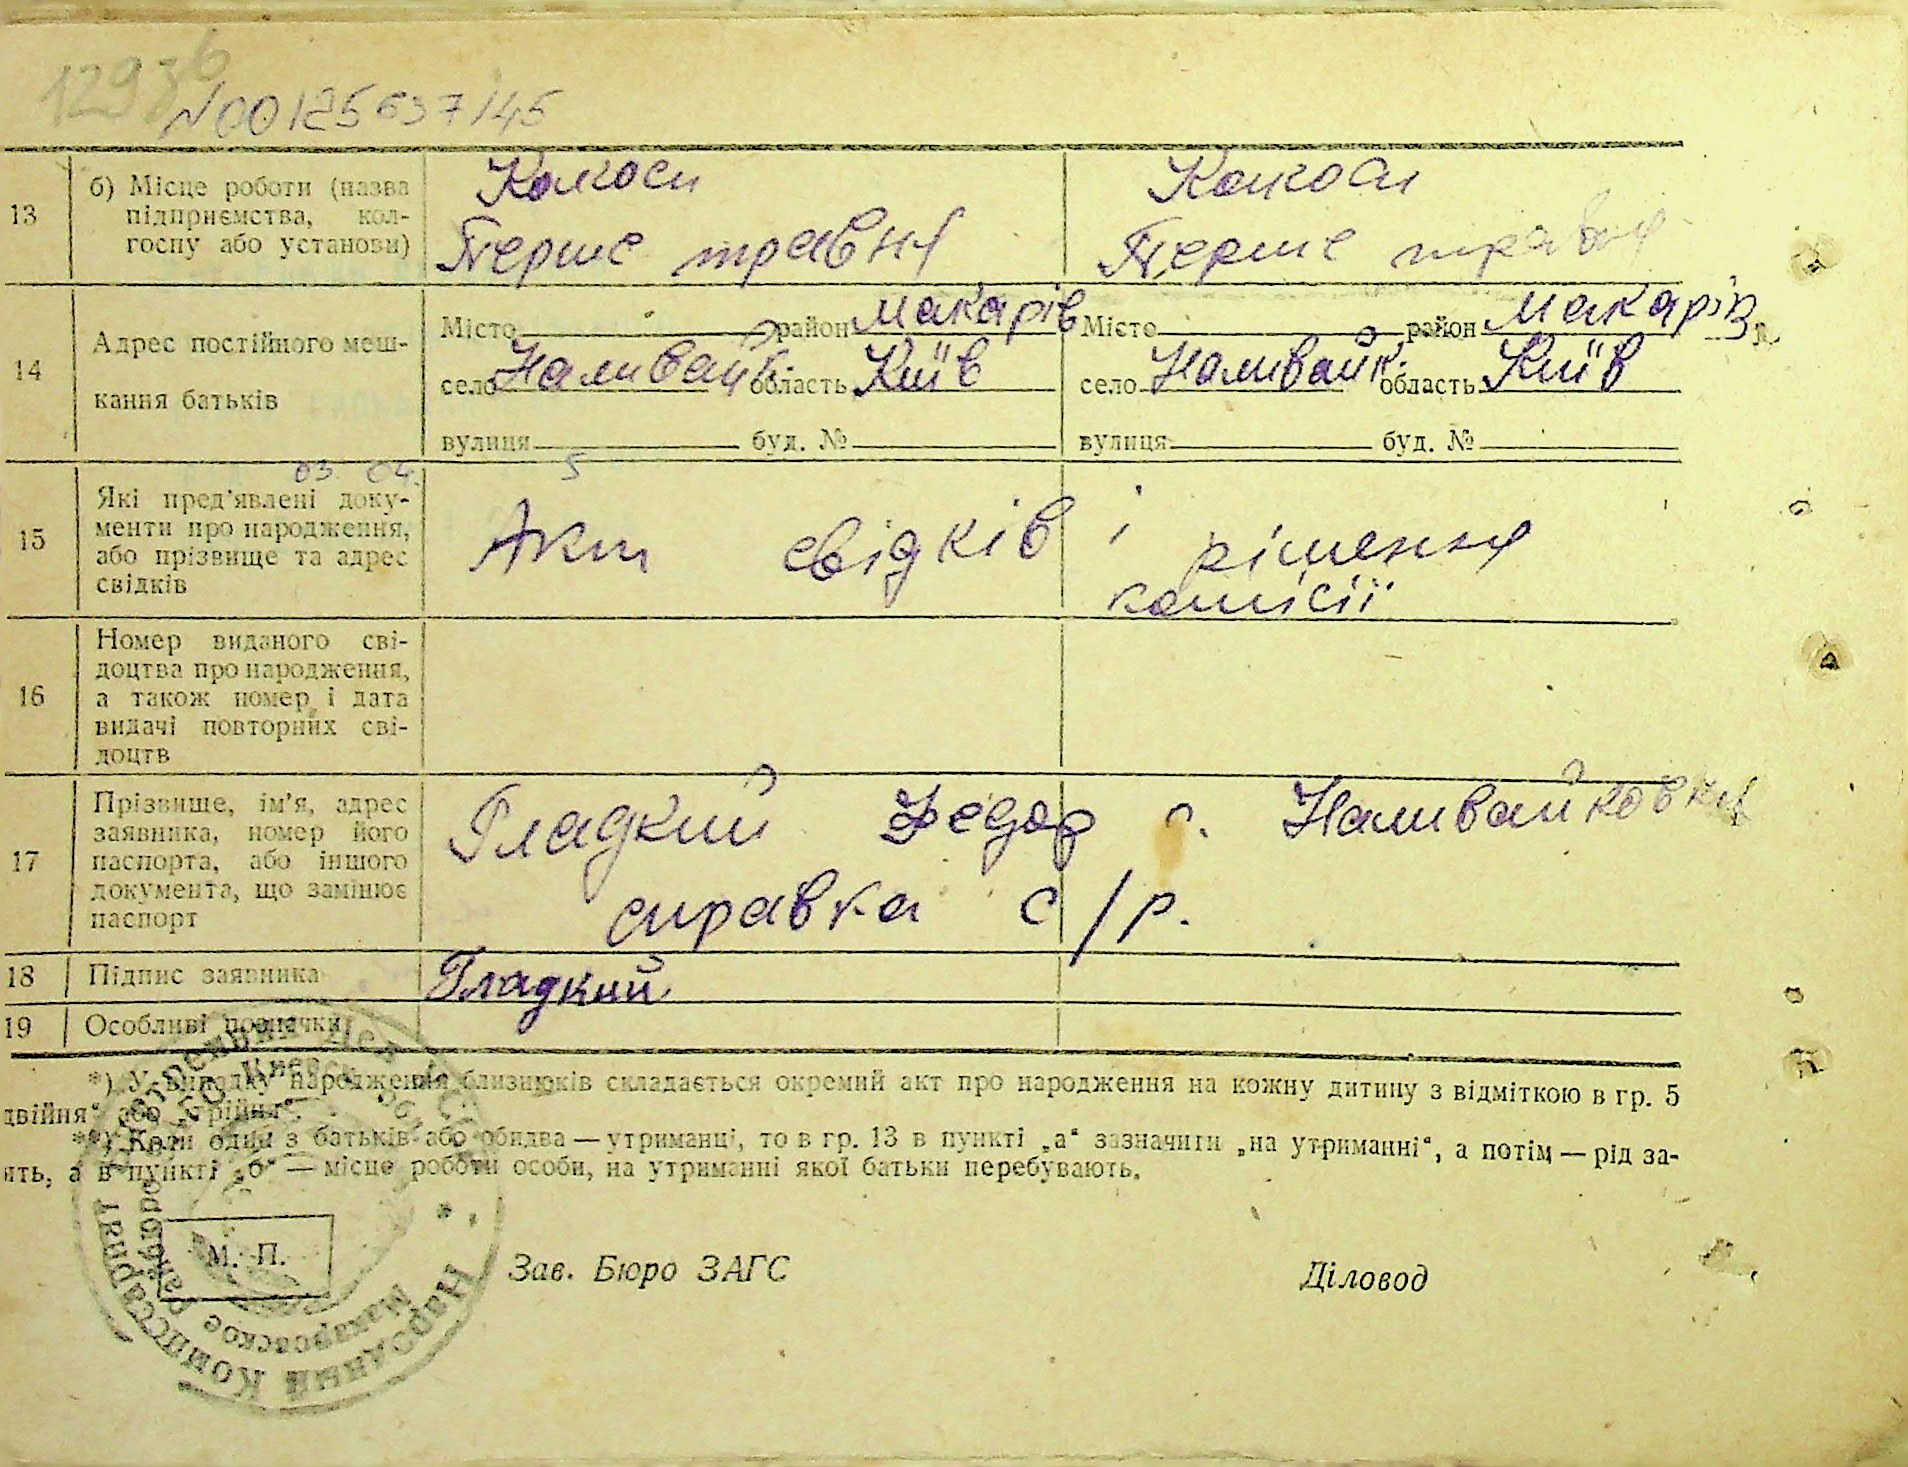 1293б
N00125637/45
13 б) Місце роботи (назва підприємства, кол-
госпу або установи)
Колгосп Колгосп
Перше травня Перше травня
14 Адрес постійного меш-
кання батьків
Місто район Макарів Місто район Макарів
село Наливайк. область Київ село Наливайк. область Київ
вулиця буд. № вулиця буд. №
03 04. 5
15 Які пред'явлені доку-
менти про народження,
або прізвище та адрес
свідків
Акт свідків і рішення
комісії
16 Номер виданого сві-
доцтва про народження,
а також номер і дата
видачі повторних сві-
доцтв
17 Прізвище, ім'я, адрес
заявника, номер його
паспорта, або іншого
документа, що замінює
паспорт
Гладкий Федор с. Наливайковка
справка с/р.
18 Підпис заявника Гладкий
19 Особливі позначки
*) У випадку народження близнюків складається окремий акт про народження на кожну дитину з відміткою в гр. 5
двійня" або "трійня".
**) Коли один з батьків або обидва — утриманці, то в гр. 13 в пункті „а" зазначити „на утриманні", а потім — рід за-
ить, а в пункті „б" — місце роботи особи, на утриманні якої батьки перебувають.
М. П.
Зав. Бюро ЗАГС Діловод
Народный Комиссариат Внутренних Дел
Макаровское районное